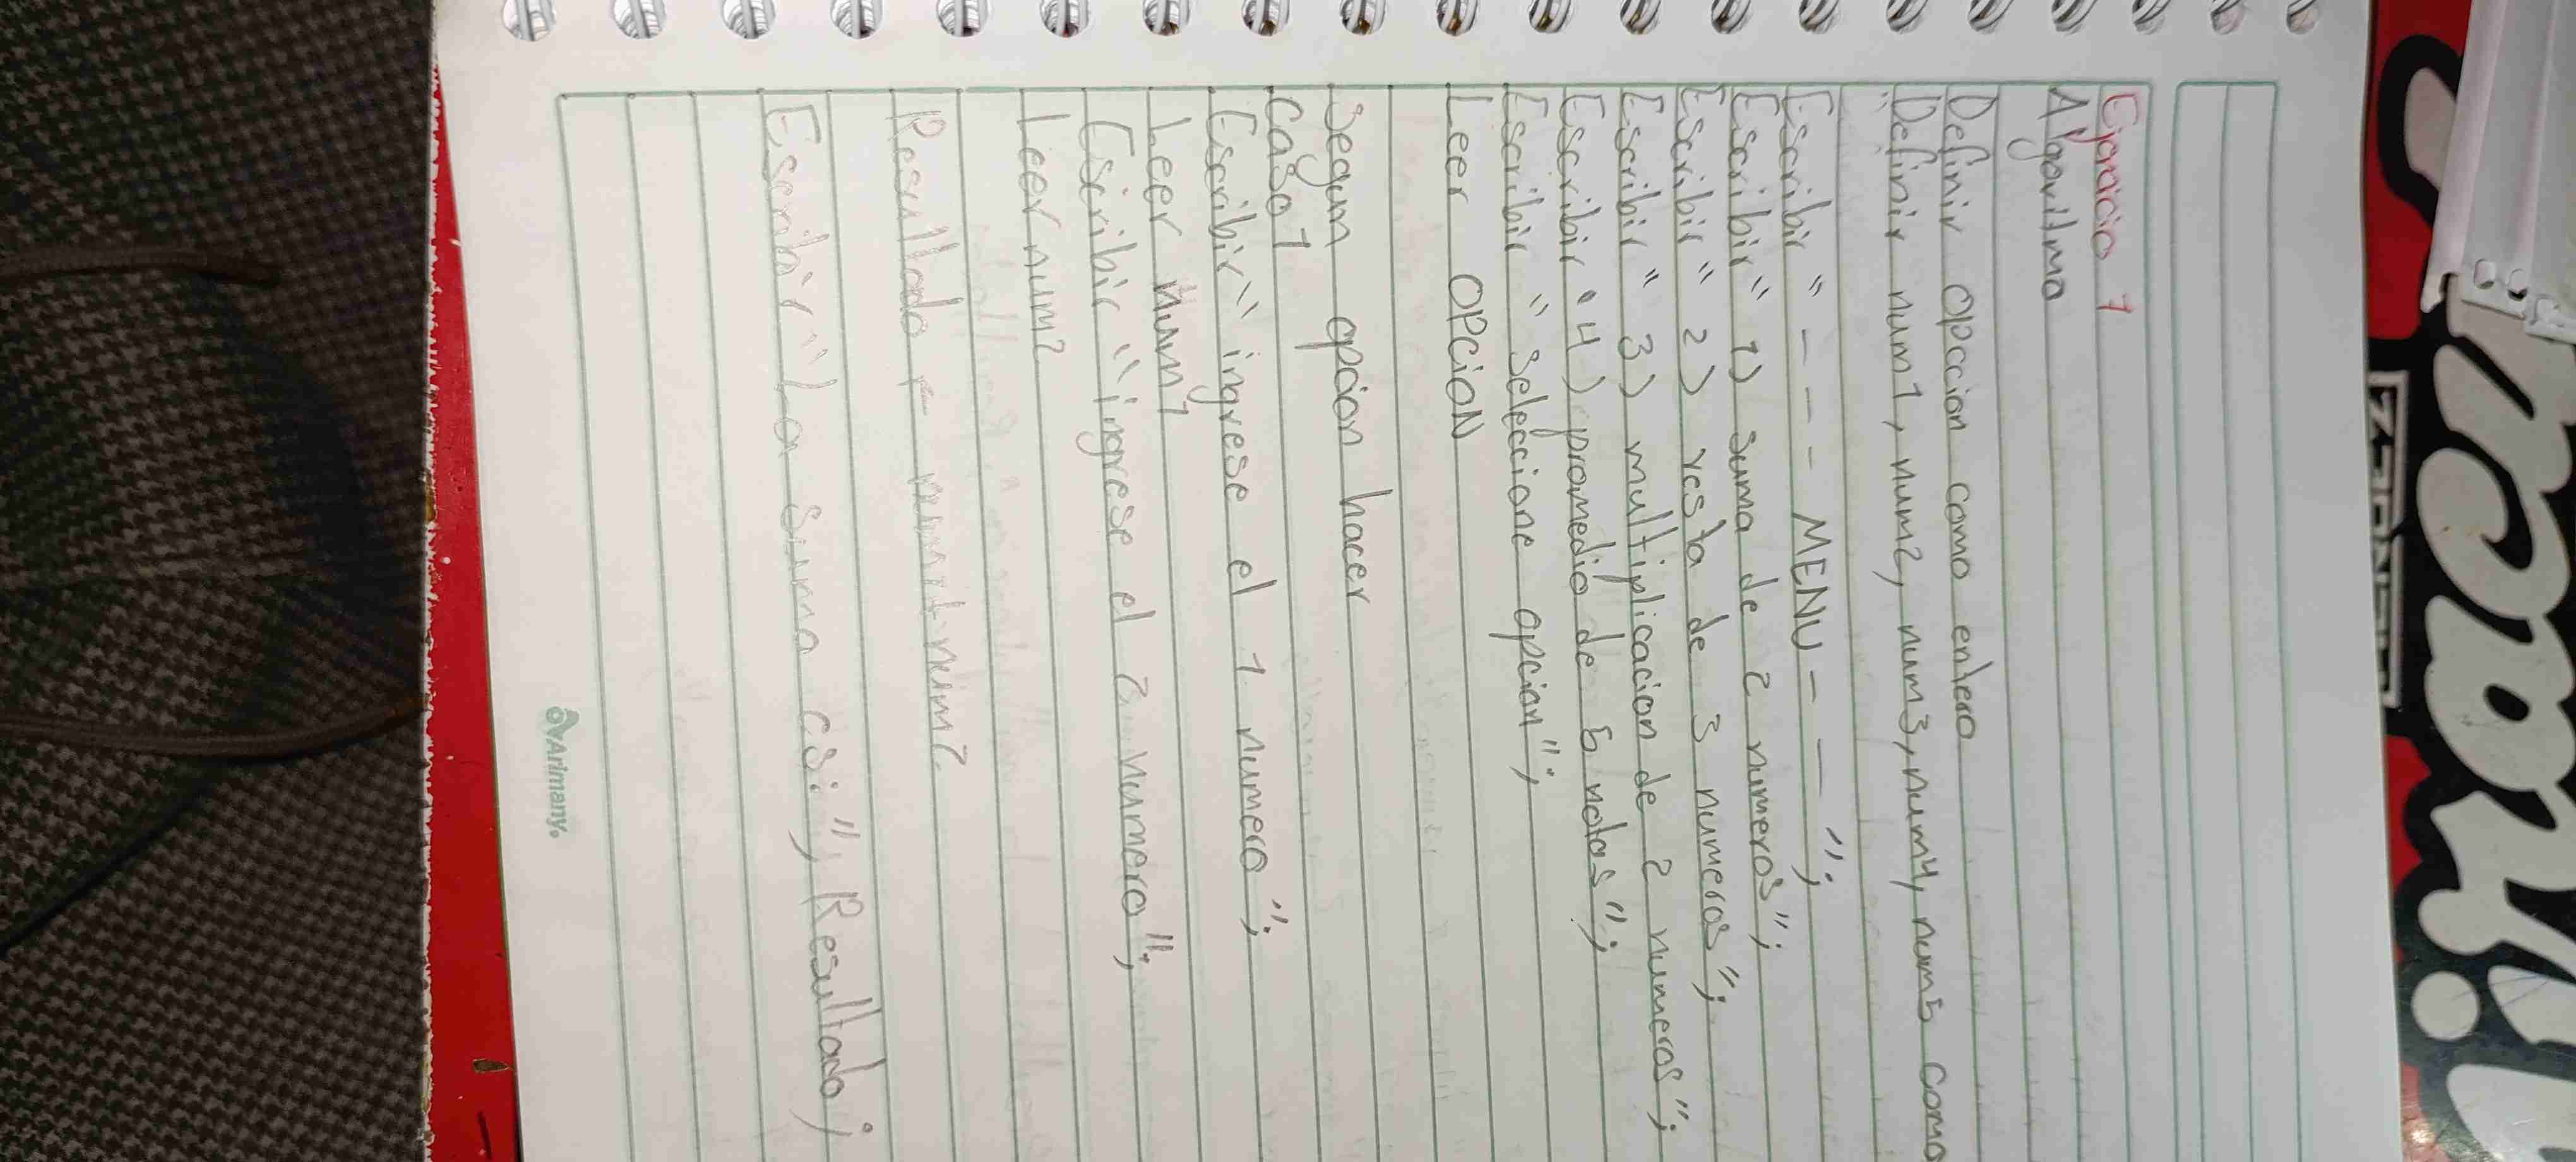 Ejercicio 1
Algoritmo
Definir opccion como entero
Definir num1, num2, num3, num4, num5 como
"
Escribir " - - - MENU - - - ";
Escribir " 1) suma de 2 numeros";
Escribir " 2) resta de 3 numeros";
Escribir " 3) multiplicacion de 2 numeros";
Escribir " 4) promedio de 5 notas";
Escribir " seleccione opcion";
Leer OPCION
segun opcion hacer
Caso 1
Escribir " ingrese el 1 numero ";
Leer num1
Escribir " ingrese el 2 numero ";
Leer num2
Resultado ← num1+num2
Escribir "La suma es: ", Resultado;
Arimany